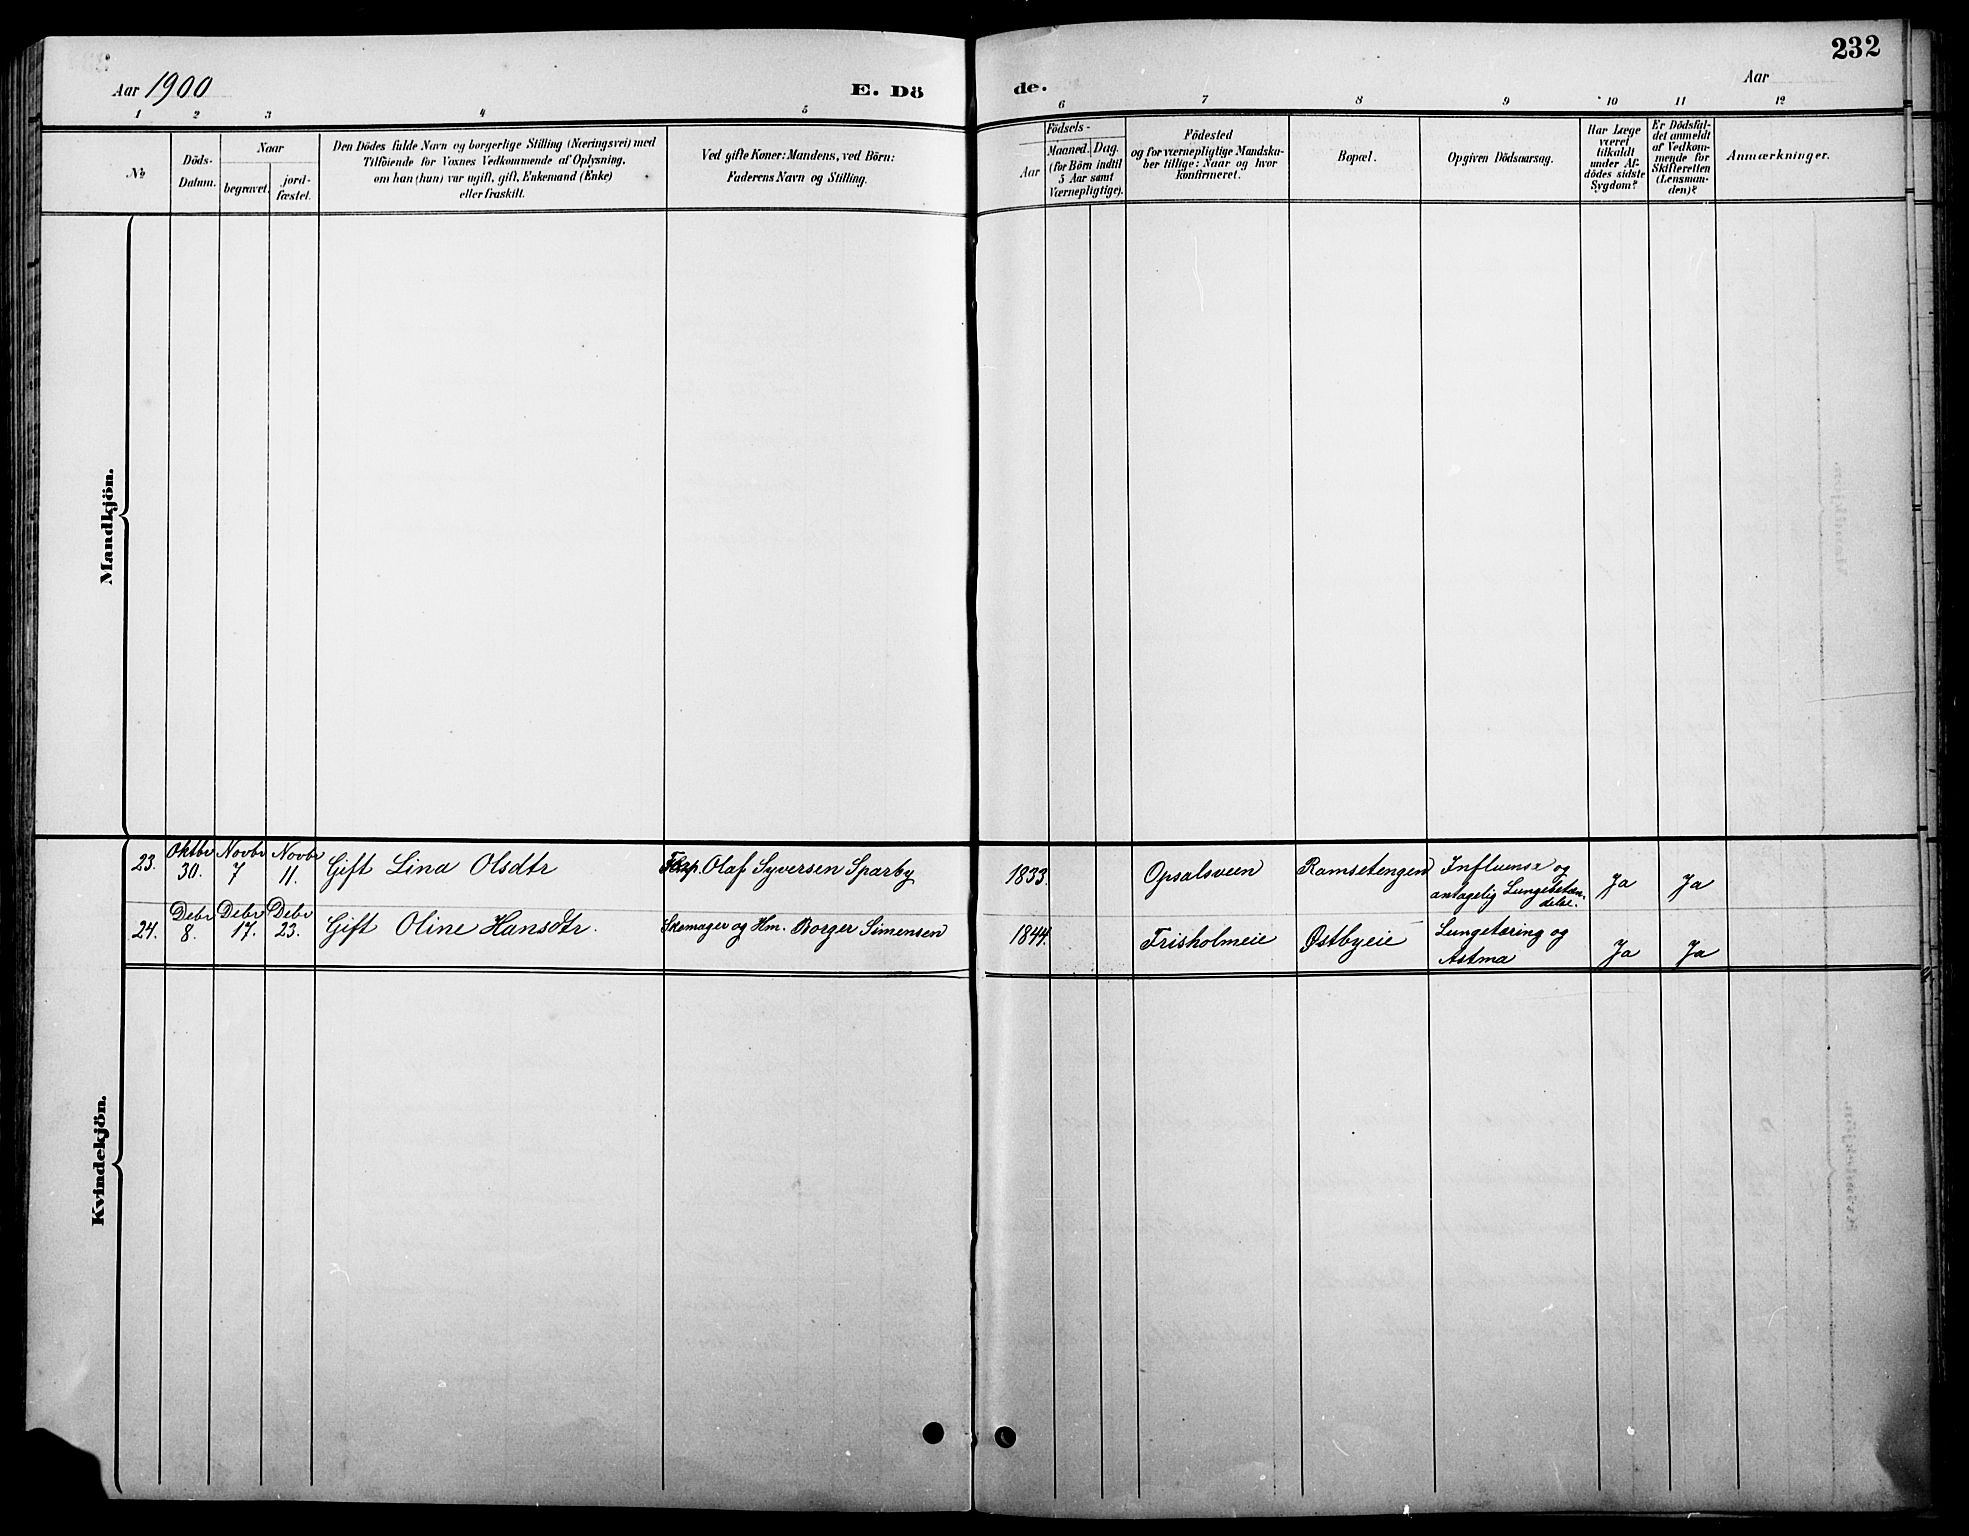 232
Aar 1900
E. Dö
de.
Aar
1 2 3 4 5 6 7 8 9 10 11 12
No
Döds-
Datum.
Naar
begravet.
jord-
fæstet.
Den Dödes fulde Navn og borgerlige Stilling (Næringsvei) med
Tilföiende for Voxnes Vedkommende af Oplysning,
om han (hun) var ugift, gift, Enkemand (Enke)
eller fraskilt.
Ved gifte Koner: Mandens, ved Börn:
Faderens Navn og Stilling.
Födsels-
Aar
Maaned. Dag.
(for Börn indtil
5 Aar samt
Værnepligtige).
Födested
og for værnepligtige Mandska-
ber tillige: Naar og hvor
konfirmeret.
Bopæl.
Opgiven Dödsaarsag.
Har Læge
været
tilkaldt
under Af-
dödes sidste
Sygdom?
Er Dödsfal-
det anmeldt
af Vedkom-
mende for
Skifteretten
(Lensman-
den)?
Anmærkninger.
Mandkjön.
Kvindekjön.
23. Oktbr 30. Novbr 7 Novbr 11. Gift Lina Olsdtr Olaf Syversen Sparby 1833. Opsalsveen Ramsetengen Influensa og
antagelig Lungebetæn-
delse. Ja Ja
24. Debr 8. Debr 17. Debr 23. Gift Oline Hansdtr. Skomager og Hm. Borger Simensen 1844. Frisholmeie Østbyeie Lungetæring og
Astma Ja Ja